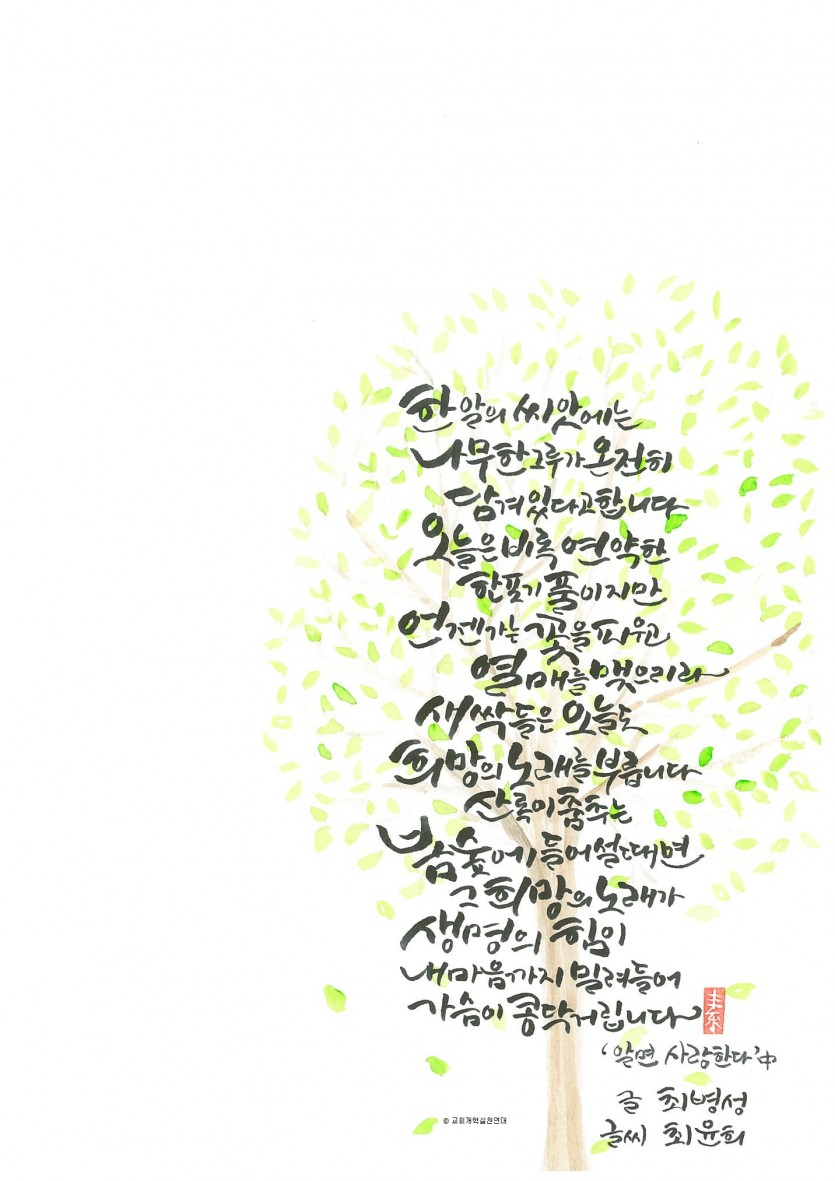 한 알의 씨앗에는
나무 한 그루가 온전히
담겨있다고 합니다
오늘은 비록 연약한
한 포기 풀이지만
언젠가는 꽃을 피우고
열매를 맺으리라
새싹들은 오늘도
희망의 노래를 부릅니다
신록이 춤추는
봄 숲에 들어설 때면
그 희망의 노래가
생명의 힘이
내 마음까지 밀려들어
가슴이 콩닥거립니다
'알면 사랑한다' 中
글 최병성
글씨 최윤희
© 교회개혁실천연대